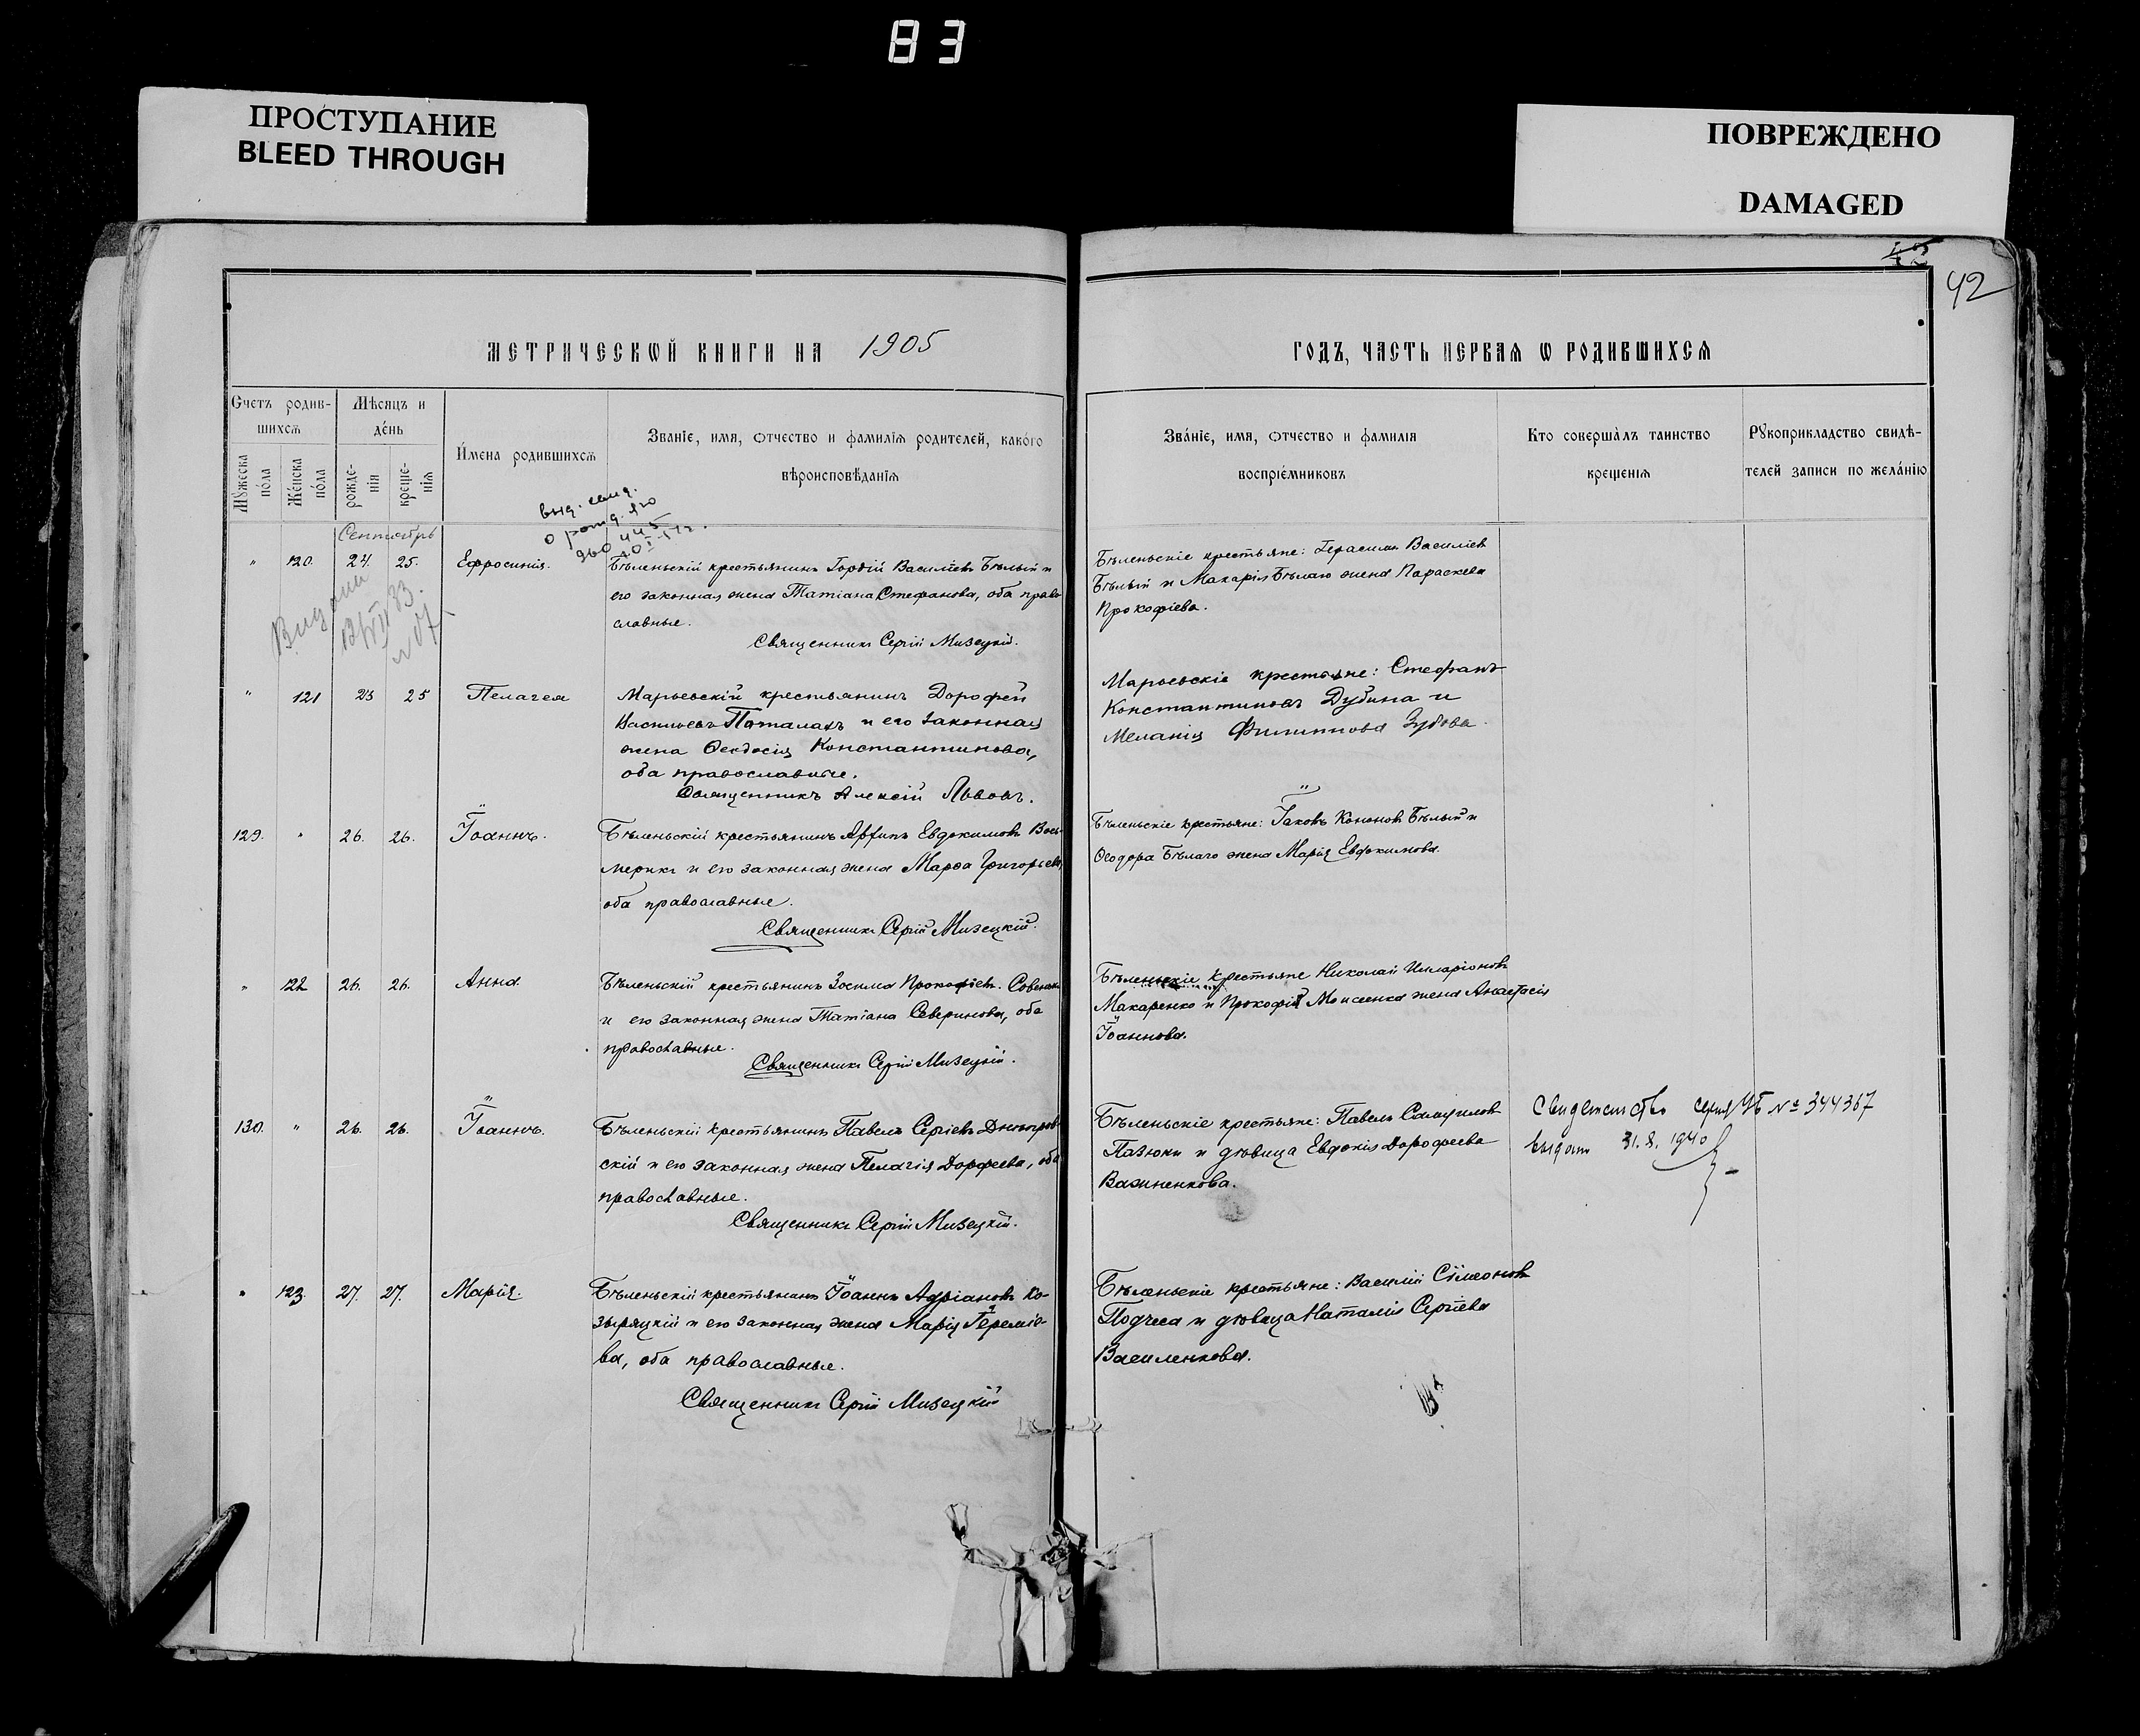 83
ПРОСТУПАНИЕ
BLEED THROUGH
ПОВРЕЖДЕНО
DAMAGED
42
МЕТРИЧЕСКѠЙ КНИГИ НА 1905
ГОДЪ, ЧАСТЬ ПЕРВАѦ Ѡ РОДИВШИХСѦ
Счетъ родив-
шихсѧ
Мꙋжеска
по́ла
Же́нска
по́ла
Мѣсѧцъ и
де́нь
рожде-
нїѧ
креще-
нїѧ
И́мена родившихсѧ
Званїе, имѧ, ѻтчество и фамилїѧ родителей, како́го
вѣроисповѣданїѧ
Зва́нїе, имѧ, ѻтчество и фамилїѧ
воспрїе́мниковъ
Кто соверша̀лъ таинство
крещенїѧ
Рꙋкоприкладство свидѣ-
телей записи по жела́нїю
Сентябрь
выд. свид.
" 120. 24. 25. Ефросинія.
Бѣленьскій крестьянинъ Гордій Василіевъ Бѣлый и
его законная жена Татіана Стефанова, оба право
славные.
Священникъ Сергій Мизецкій.
Бѣленьскіе крестьяне: Герасимъ Василіев
Бѣлый и Макарія Бѣлаго жена Параскева
Прокофіева.
Видано
" 121 23 25 Пелагея
Марьевскій крестьянинъ Дорофей
Васильевъ Паталахъ и его законная
жена Ѳеодосія Константинова,
оба православные.
Священникъ Алексій Львовъ.
Марьевскіе крестьяне: Стефанъ
Константиновъ Дубина и
Меланія Филиппова Зубова.
129. " 26. 26. Іоаннъ.
Бѣленьскій крестьянинъ Евдокимовъ
и его законная жена Марѳа Григорьева,
оба православные.
Священникъ Сергій Мизецкій.
Бѣленьскіе крестьяне: Іаковъ Кононовъ Бѣлый и
Ѳеодора Бѣлаго жена Марія Евдокимова.
" 122 26. 26. Анна.
Бѣленьскій крестьянинъ Зосима Прокофіев.
и его законная жена Татіана Северинова, оба
православные.
Священникъ Сергій Мизецкій.
Бѣленьскіе крестьяне Николай Иларіоновъ
Макаренко и Прокофія Моисеенка жена Анастасія
Іоаннова.
130. " 26. 26. Іоаннъ.
Бѣленьскій крестьянинъ Павелъ Сергіевъ Днѣпров-
скій и его законная жена Пелагія Дорофеева, оба
православные.
Священникъ Сергій Мизецкій.
Бѣленьскіе крестьяне: Павелъ Самуилов
Пазюки и дѣвица Евдокія Дорофеева
Важненкова.
Свидетельство серия УБ № 344367
выдан 31. 8. 1940
" 123. 27. 27. Марія.
Бѣленьскій крестьянинъ Іоаннъ Адріановъ Ко-
зыряцкій и его законная жена Марія Іеремие-
ва, оба православные.
Священникъ Сергій Мизецкій
Бѣленьскіе крестьяне: Василій Сімеонов
Подчеса и дѣвица Наталія Сергіева
Василенкова.